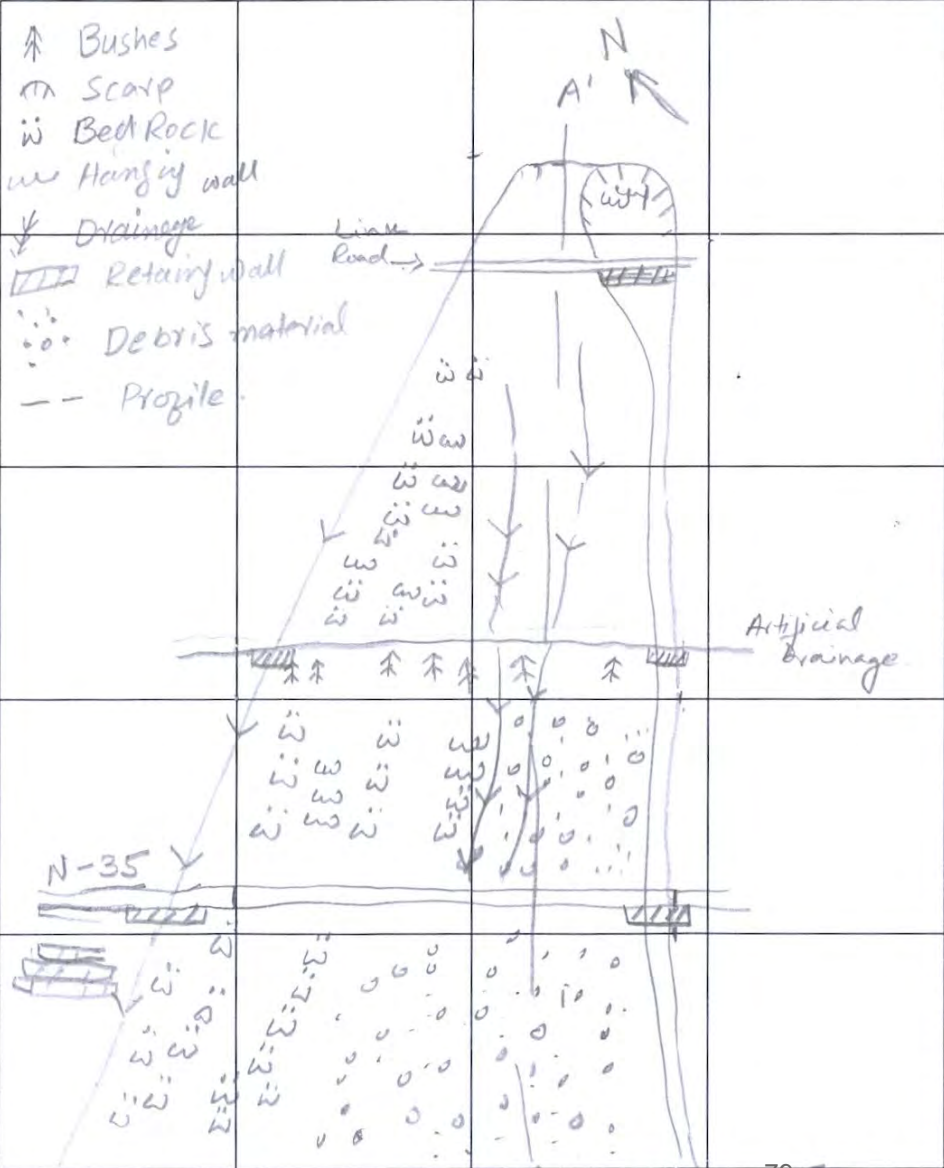 Bushes
Scarp
Bed Rock
Hanging wall
Drainage
Retaing wall
Debris material
Profile.
N
A'
Link
Road
Artificial
Drainage
N-35